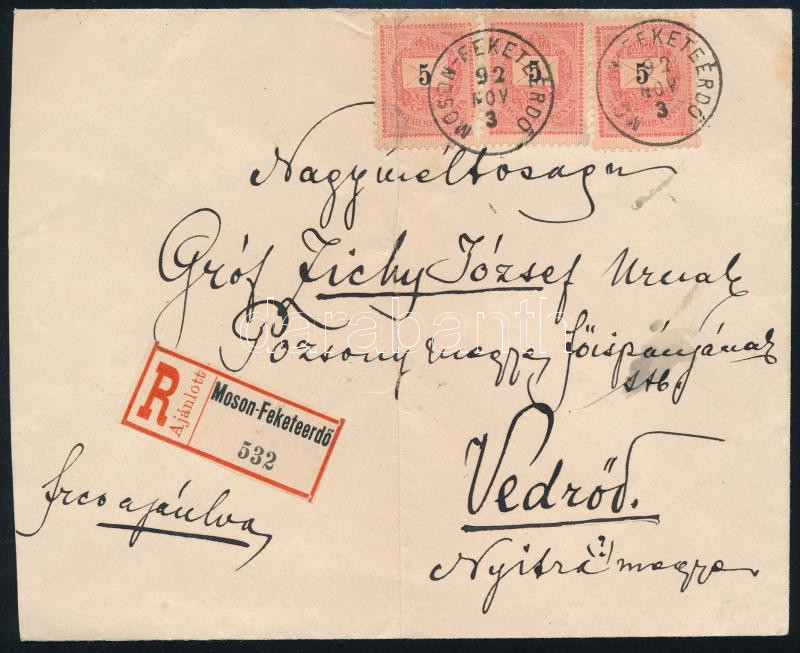 5 5 5
MOSON-FEKETEERDŐ 92 NOV 3
MOSON-FEKETEERDŐ 92 NOV 3
Nagyméltoságu
Gróf Zichy József Urnak
Pozsony megye főispánjának
stb.
R Ajánlott Moson-Feketeerdő
532
frco ajánlva
Vedrőd.
Nyitra (?) megye
darabanth